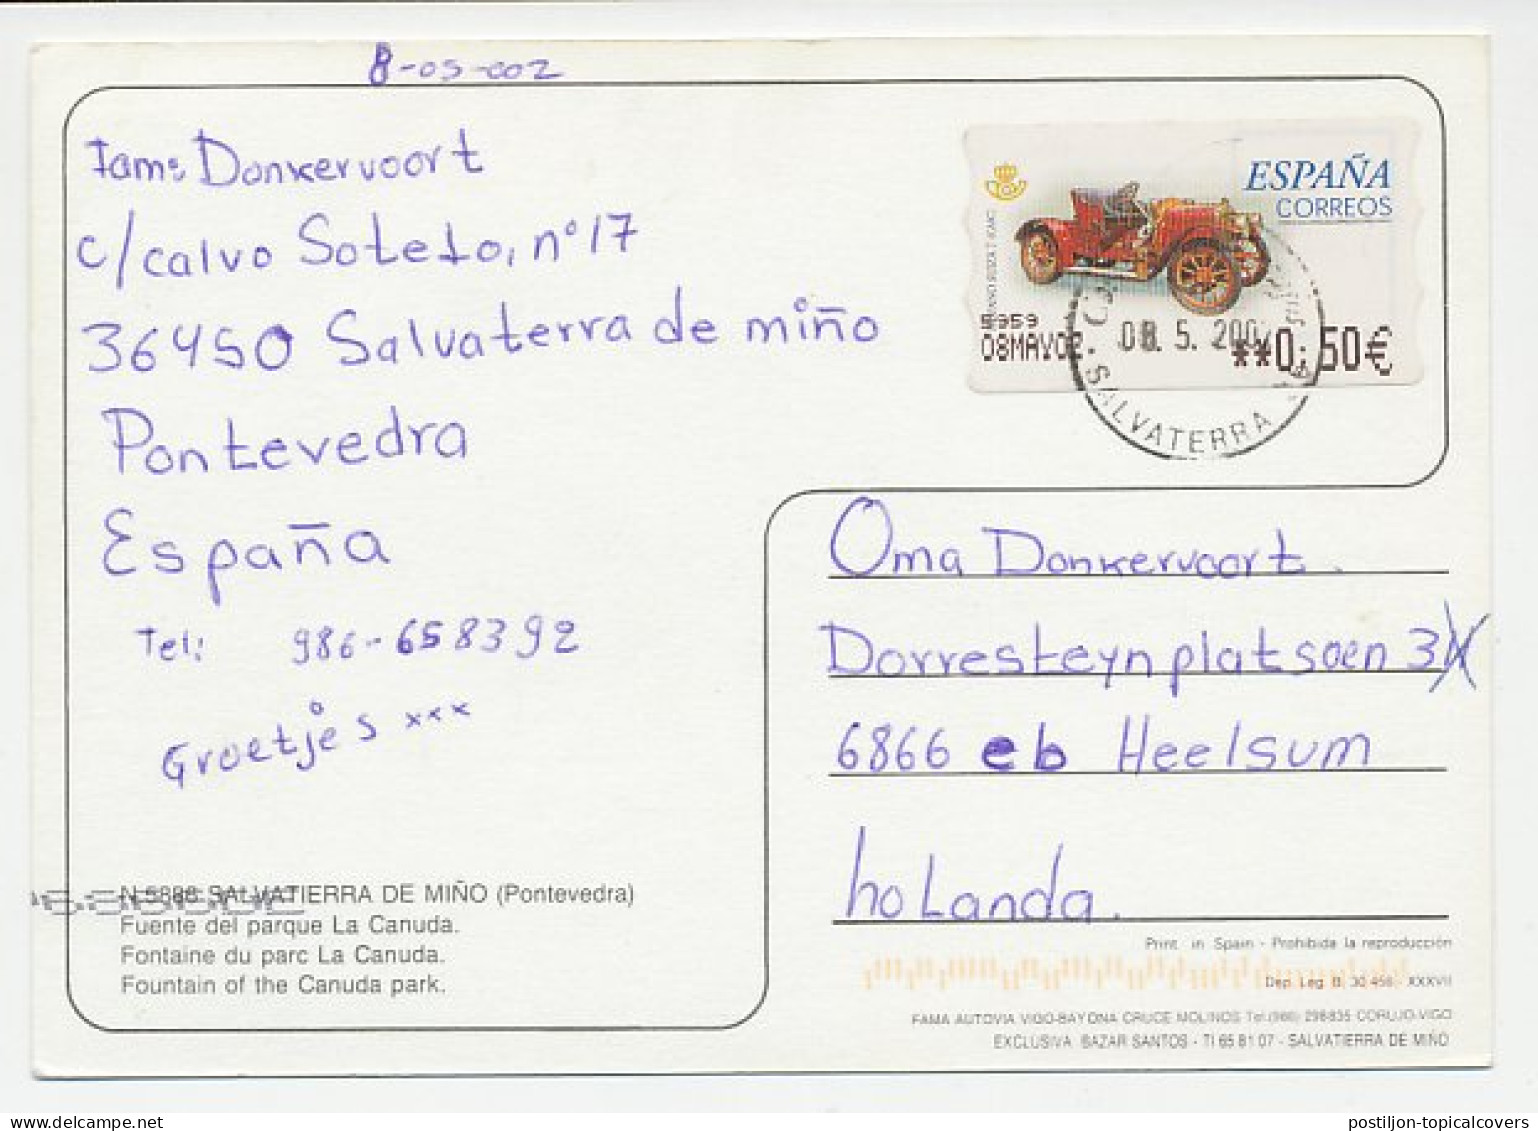 8-05-002
Fam: Donkervoort
c/calvo Sotelo, nº 17
36450 Salvaterra de miño
Pontevedra
España
Tel: 986-658392
Groetjes xxx
ESPAÑA
CORREOS
5959
08MAY02
**0,50€
08. 5. 2002
SALVATERRA
Oma Donkervoort.
Dorresteynplatsoen 3
6866 eb Heelsum
hoLanda.
N.5886 SALVATIERRA DE MIÑO (Pontevedra)
Fuente del parque La Canuda.
Fontaine du parc La Canuda.
Fountain of the Canuda park.
Print in Spain - Prohibida la reproducción
Dep. Leg. B. 30.456 - XXXVII
FAMA AUTOVIA VIGO-BAYONA CRUCE MOLINOS Tel.(986) 298835 CORUJO-VIGO
EXCLUSIVA BAZAR SANTOS - Tl 65 81 07 - SALVATIERRA DE MIÑO
postiljon-topicalcovers